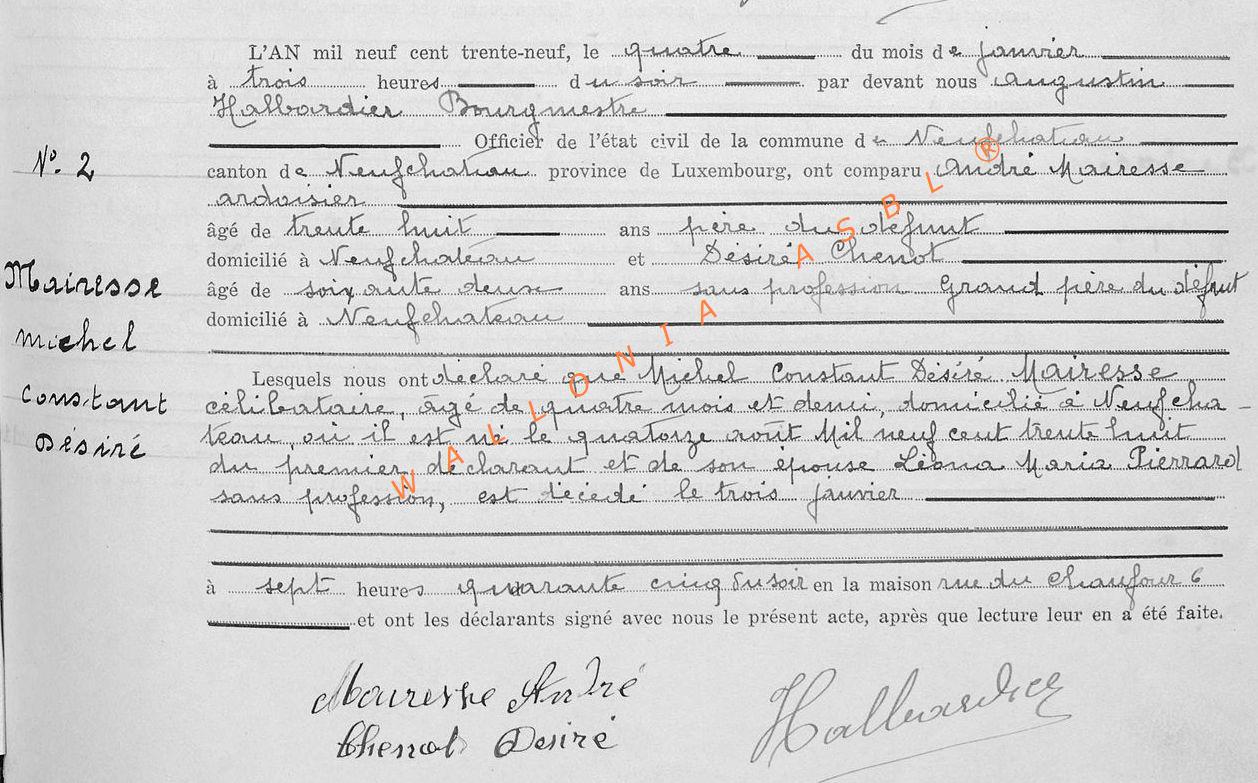 L'AN mil neuf cent trente-neuf, le quatre du mois de janvier
à trois heures du soir par devant nous Augustin
Halbardier Bourgmestre
Officier de l'état civil de la commune de Neufchateau
N° 2
canton de Neufchateau province de Luxembourg, ont comparu André Mairesse
ardoisier
âgé de trente huit ans père du défunt
domicilié à Neufchateau et Désiré Chenot
Mairesse
âgé de soixante deux ans sans profession Grand père du défunt
domicilié à Neufchateau
Michel
Lesquels nous ont déclaré que Michel Constant Désiré Mairesse
Constant
célibataire, âgé de quatre mois et demi, domicilié à Neufcha-
teau, où il est né le quatorze août Mil neuf cent trente huit
Désiré
du premier déclarant et de son épouse Léona Maria Pierrard
sans profession, est décédé le trois janvier
à sept heures quarante cinq du soir en la maison rue du Chaufour 6
et ont les déclarants signé avec nous le présent acte, après que lecture leur en a été faite.
Mairesse André
Chenot Désiré
Halbardier
WALLONIA ASBL ®